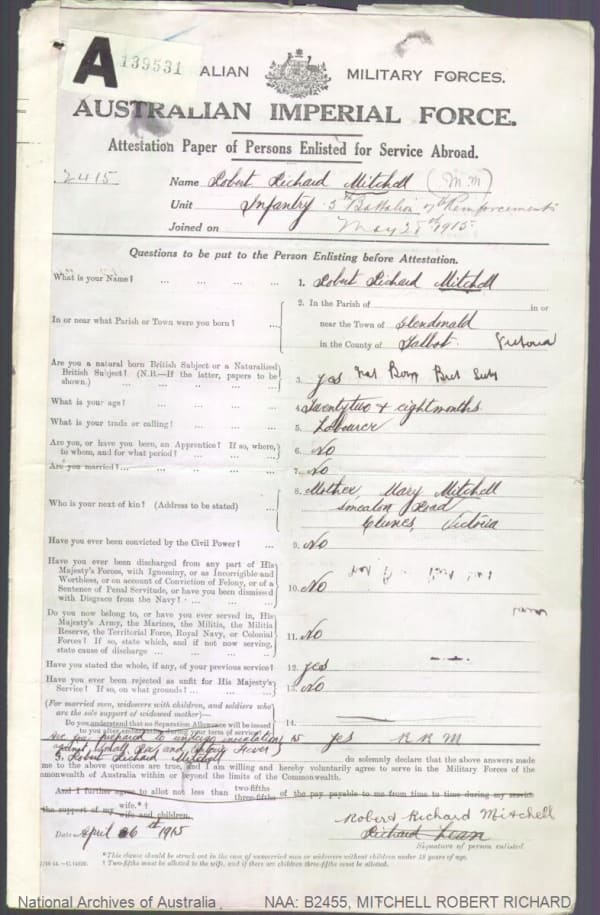 A 139531
ALIAN MILITARY FORCES.
AUSTRALIAN IMPERIAL FORCE.
Attestation Paper of Persons Enlisted for Service Abroad.
2415 Name Robert Richard Mitchell (M.M)
Unit Infantry 5th Battalion 7th Reinforcements
Joined on May 28th 1915
Questions to be put to the Person Enlisting before Attestation.
What is your Name? ... ... ... ... 1. Robert Richard Mitchell
2. In the Parish of in or
In or near what Parish or Town were you born? ... near the Town of Glendonald
in the County of Talbot. Victoria
Are you a natural born British Subject or a Naturalised
British Subject? (N.B.—If the latter, papers to be
shown.) ... ... ... ... 3. yes Nat Born Brit Subj
What is your age? ... ... ... ... 4. Twenty two & eight months
What is your trade or calling? ... ... ... 5. Labourer
Are you, or have you been, an Apprentice? If so, where,
to whom, and for what period? ... ... ... 6. No
Are you married? ... ... ... ... 7. No
8. Mother, Mary Mitchell
Who is your next of kin? (Address to be stated) ... Smeaton Road
Clunes, Victoria
Have you ever been convicted by the Civil Power? ... 9. No
Have you ever been discharged from any part of His
Majesty's Forces, with Ignominy, or as Incorrigible and
Worthless, or on account of Conviction of Felony, or of a
Sentence of Penal Servitude, or have you been dismissed
with Disgrace from the Navy? ... ... ... 10. No
Do you now belong to, or have you ever served in, His
Majesty's Army, the Marines, the Militia, the Militia
Reserve, the Territorial Force, Royal Navy, or Colonial
Forces? If so, state which, and if not now serving,
state cause of discharge ... ... ... 11. No
Have you stated the whole, if any, of your previous service? 12. yes
Have you ever been rejected as unfit for His Majesty's
Service? If so, on what grounds? ... ... ... 13. No
(For married men, widowers with children, and soldiers who
are the sole support of widowed mother)—
Do you understand that no Separation Allowance will be issued
to you after embarkation during your term of service? 14.
Are you prepared to undergo inoculation 15 yes R R M
against Small Pox and Enteric Fever?
I, Robert Richard Mitchell do solemnly declare that the above answers made
me to the above questions are true, and I am willing and hereby voluntarily agree to serve in the Military Forces of the
mmonwealth of Australia within or beyond the limits of the Commonwealth.
And I further agree to allot not less than two-fifths three-fifths of the pay payable to me from time to time during my service
the support of my wife.* †
wife and children. Robert Richard Mitchell
Date April 26th 1915
Signature of person enlisted.
*This clause should be struck out in the case of unmarried men or widowers without children under 18 years of age.
† Two-fifths must be allotted to the wife, and if there are children three-fifths must be allotted.
National Archives of Australia NAA: B2455, MITCHELL ROBERT RICHARD